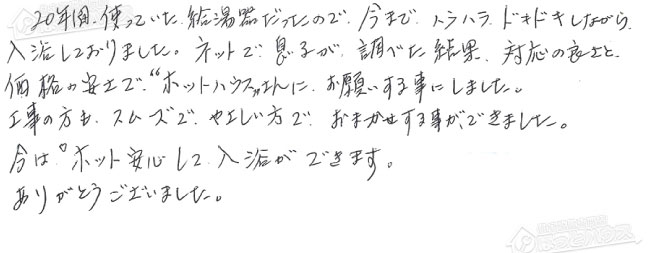 20年間、使っていた給湯器だったので、今まで、ハラハラ、ドキドキしながら、
入浴しておりました。ネットで、息子が、調べた結果、対応の良さと、
価格の安さで、“ホットハウス”さんに、お願いする事にしました。
工事の方も、スムーズで、やさしい方で、おまかせする事ができました。
今は“ホット安心して、入浴ができます。
ありがとうございました。